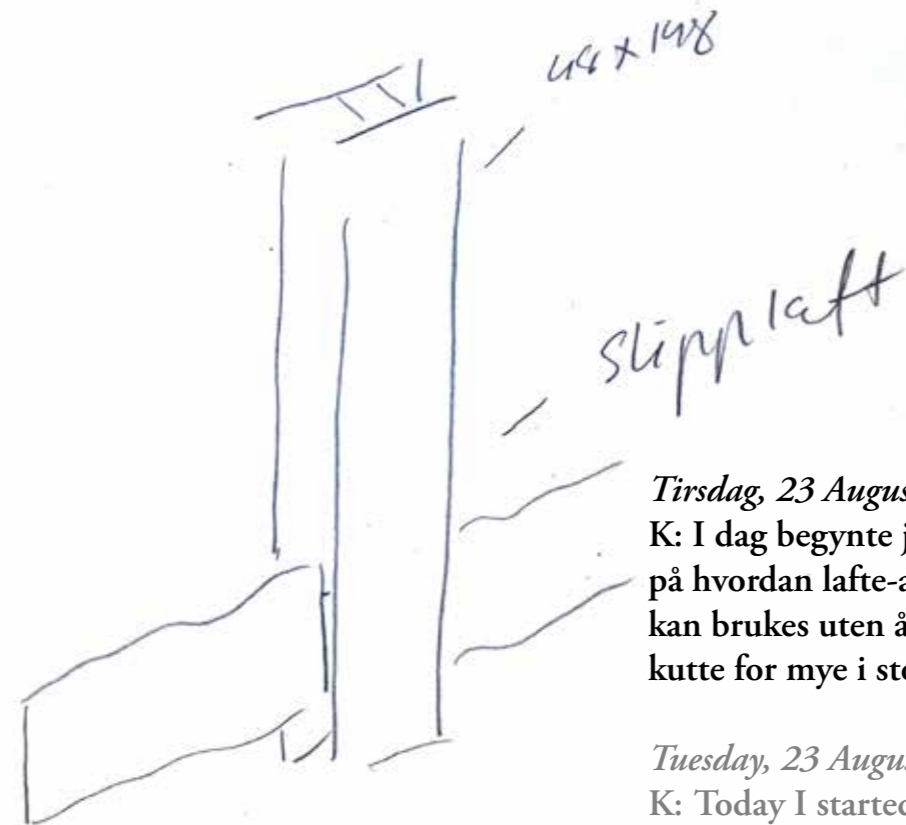 48 x 148
Slipplaft
Tirsdag, 23 Augus
K: I dag begynte j
på hvordan lafte-a
kan brukes uten å
kutte for mye i sto
Tuesday, 23 Augus
K: Today I started